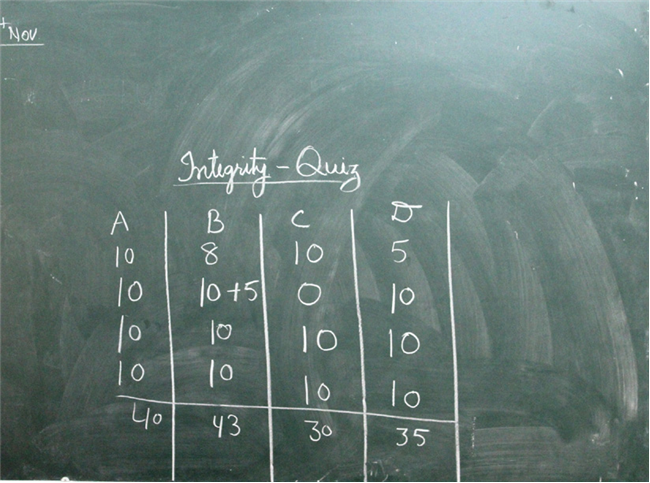 Nov
Integrity - Quiz
A B C D
10 8 10 5
10 10+5 0 10
10 10 10 10
10 10 10 10
40 43 30 35